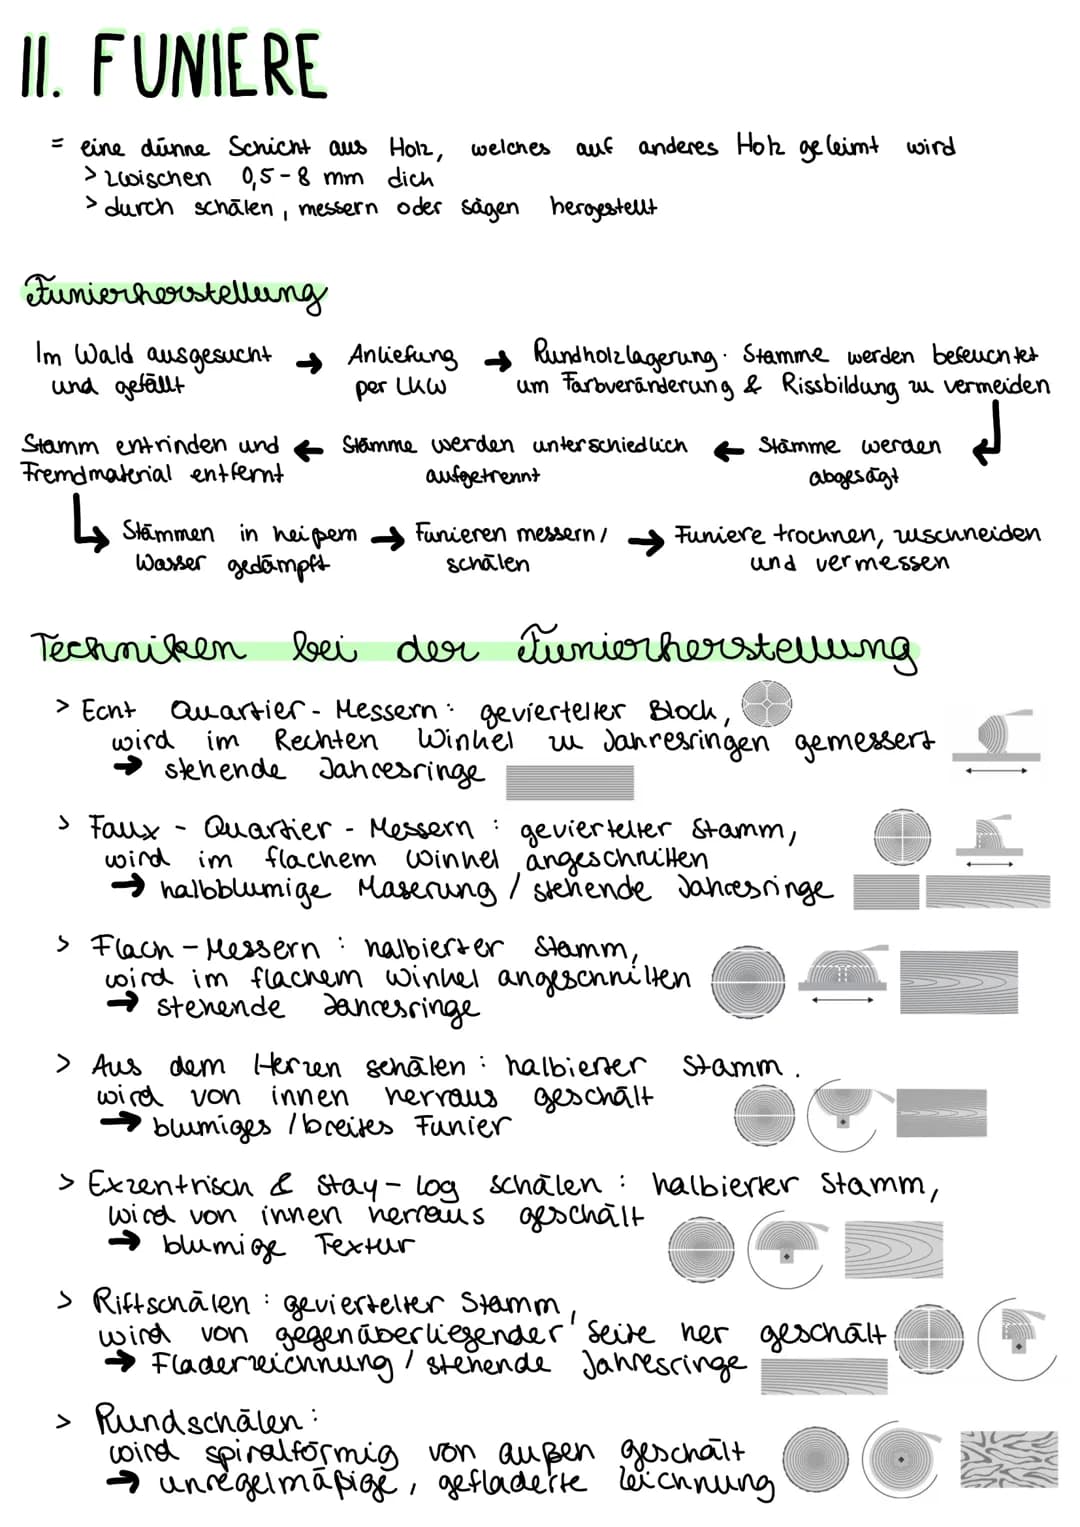 II. FUNIERE
= eine dünne Schicht aus Holz, welches auf anderes Holz geleimt wird
> zwischen 0,5-8 mm dich
> durch schälen, messern oder sägen hergestellt
Funierherstellung
Im Wald ausgesucht → Anliefung → Rundholzlagerung: Stamme werden befeuchtet
und gefällt per LKW um Farbveränderung & Rissbildung zu vermeiden
Stamm entrinden und ← Stämme werden unterschiedlich ← Stämme werden
Fremdmaterial entfernt aufgetrennt abgesägt
Stämmen in heißem → Funieren messern/ → Funiere trocknen, zuschneiden
Wasser gedämpft schälen und vermessen
Techniken bei der Funierherstellung
> Echt Quartier-Messern: gevierteller Block,
wird im Rechten Winkel zu Jahresringen gemessert
→ stehende Jahresringe
> Faux - Quartier - Messern: gevierteller Stamm,
wird im flachem Winkel angeschnitten
→ halbblumige Maserung / stehende Jahresringe
> Flach-Messern: halbierter Stamm,
wird im flachem Winkel angeschnitten
→ stehende Jahresringe
> Aus dem Herzen schälen: halbierter Stamm.
wird von innen herraus geschält
→ blumiges / breites Funier
> Exzentrisch & Stay-Log schälen: halbierter Stamm,
wird von innen herraus geschält
→ blumige Textur
> Riftschälen: gevierteller Stamm,
wird von gegenüberliegender Seite her geschält
→ Fladerzeichnung / stehende Jahresringe
> Rundschälen:
wird spiralförmig von außen geschält
→ unregelmäßige, gefladerte Zeichnung